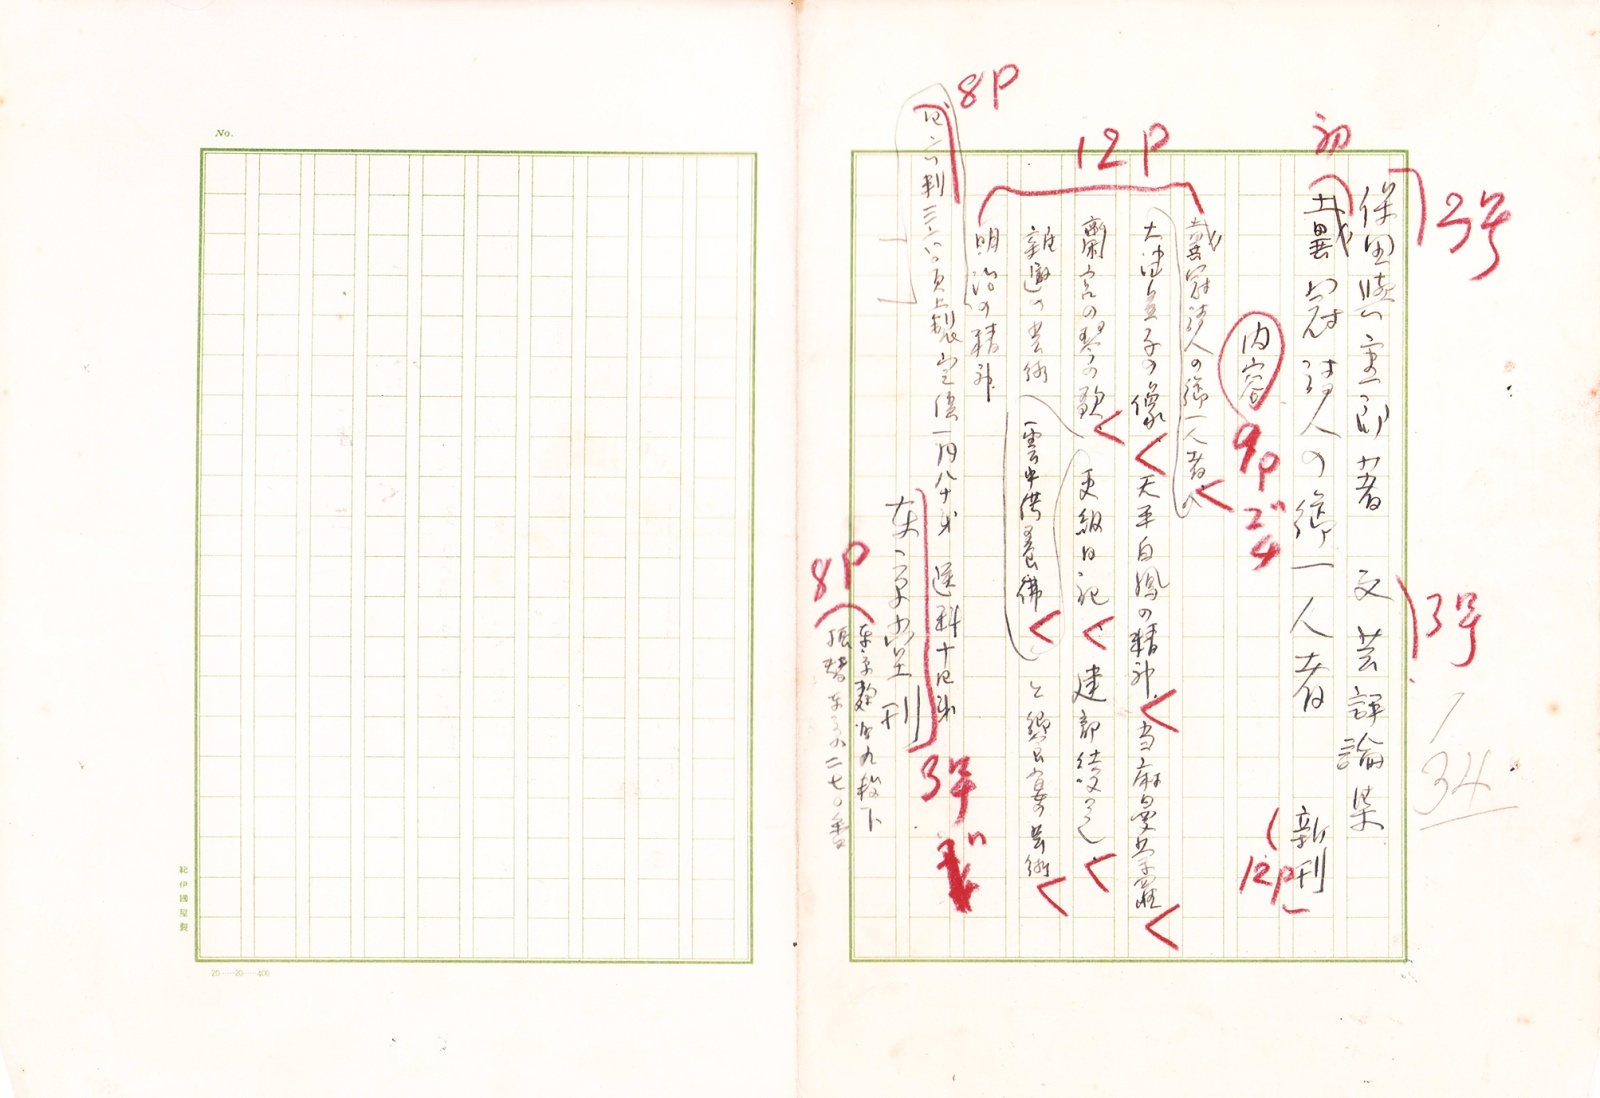 保田与重郎著 文芸評論集
戴冠詩人の御一人者 新刊
内容
戴冠詩人の御一人者
大津皇子の像 天平白鳳の精神 当麻曼荼羅
齋宮の琴の歌 更級日記 建部綾足
雑遊の芸術 雲中供養佛 と郷民哀話芸術
明治の精神
四六判三三六頁上製 定価一円八十銭 送料十四銭
東京堂刊
東京麹町九段下
振替東京二七〇番
2号
3号
初
12P
8P
9P
ゴ
4
12P
3号
8P
34
No.
紀伊國屋製
20—20—400